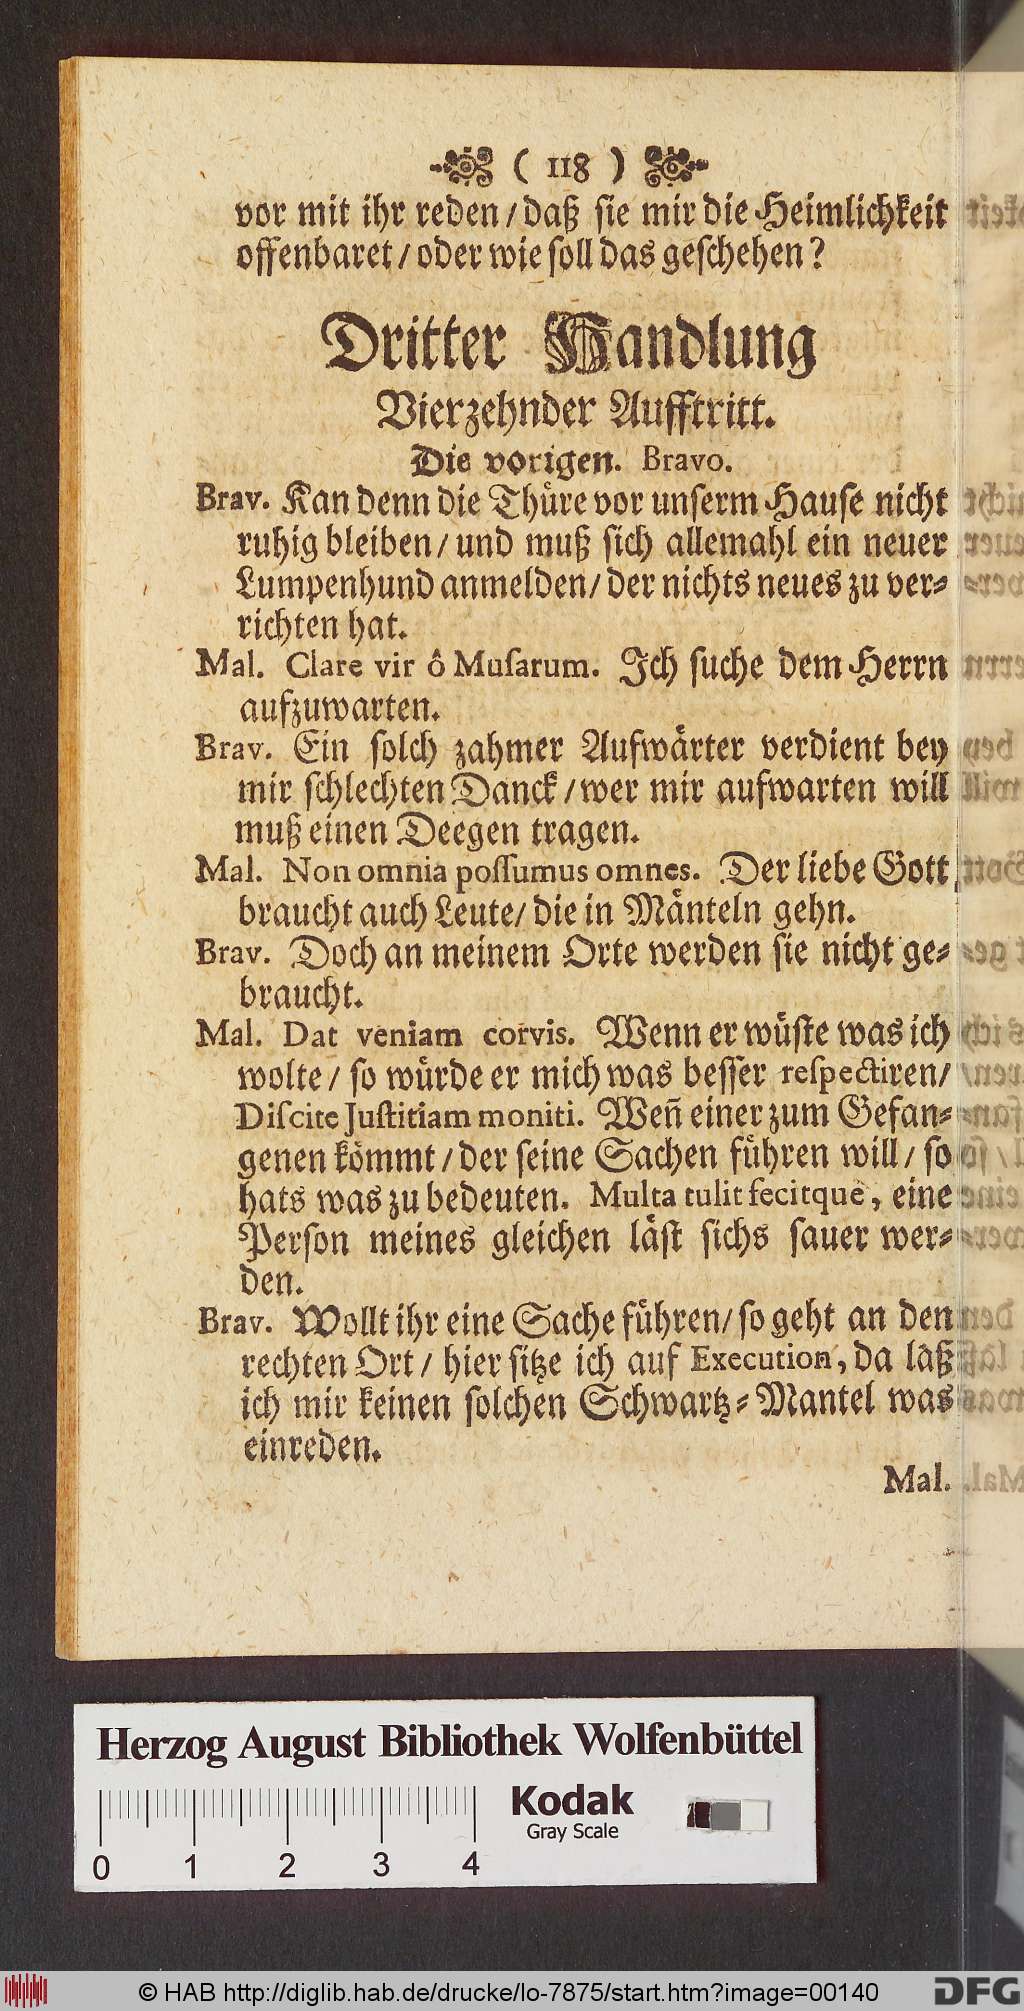 ( 118 )
vor mit ihr reden / daß sie mir die Heimlichkeit
offenbaret / oder wie soll das geschehen?
Dritter Handlung
Vierzehnder Aufftritt.
Die vorigen. Bravo.
Brav. Kan denn die Thüre vor unserm Hause nicht
ruhig bleiben / und muß sich allemahl ein neuer
Lumpenhund anmelden / der nichts neues zu ver-
richten hat.
Mal. Clare vir ô Musarum. Ich suche dem Herrn
aufzuwarten.
Brav. Ein solch zahmer Aufwärter verdient bey
mir schlechten Danck / wer mir aufwarten will
muß einen Deegen tragen.
Mal. Non omnia possumus omnes. Der liebe Gott
braucht auch Leute / die in Mänteln gehn.
Brav. Doch an meinem Orte werden sie nicht ge-
braucht.
Mal. Dat veniam corvis. Wenn er wüste was ich
wolte / so würde er mich was besser respectiren /
Discite Justitiam moniti. Weñ einer zum Gefan-
genen kömmt / der seine Sachen führen will / so
hats was zu bedeuten. Multa tulit fecitque, eine
Person meines gleichen läst sichs sauer wer-
den.
Brav. Wollt ihr eine Sache führen / so geht an den
rechten Ort / hier sitze ich auf Execution, da laß
ich mir keinen solchen Schwartz-Mantel was
einreden.
Mal.
Herzog August Bibliothek Wolfenbüttel
Kodak
Gray Scale
0 1 2 3 4
© HAB http://diglib.hab.de/drucke/lo-7875/start.htm?image=00140
DFG